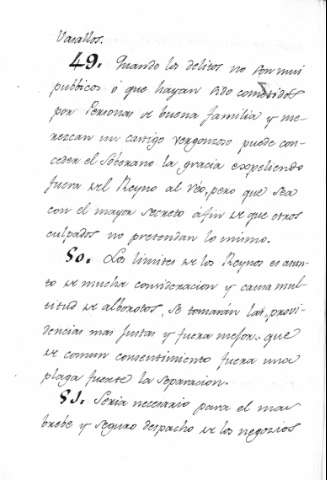 Vasallos.
49. Quando los delitos no son mui
publicos ó que hayan sido cometidos
por Personas de buena familia y me-
rezcan un castigo vergonzoso puede con-
ceder el Soberano la gracia expeliendo
fuera del Reyno al Réo, pero que sea
con el mayor secreto á fin de que otros
culpados no pretendan lo mismo.
50. Los limites de los Reynos es asun-
to de mucha consideracion y causa mul-
titud de alborotos. Se tomarán las provi-
dencias mas justas y fuera mejor que
de comun consentimiento fuera una
plaza fuerte la separacion.
51. Seria necesario para el mas
brebe y seguro despacho de los negozios